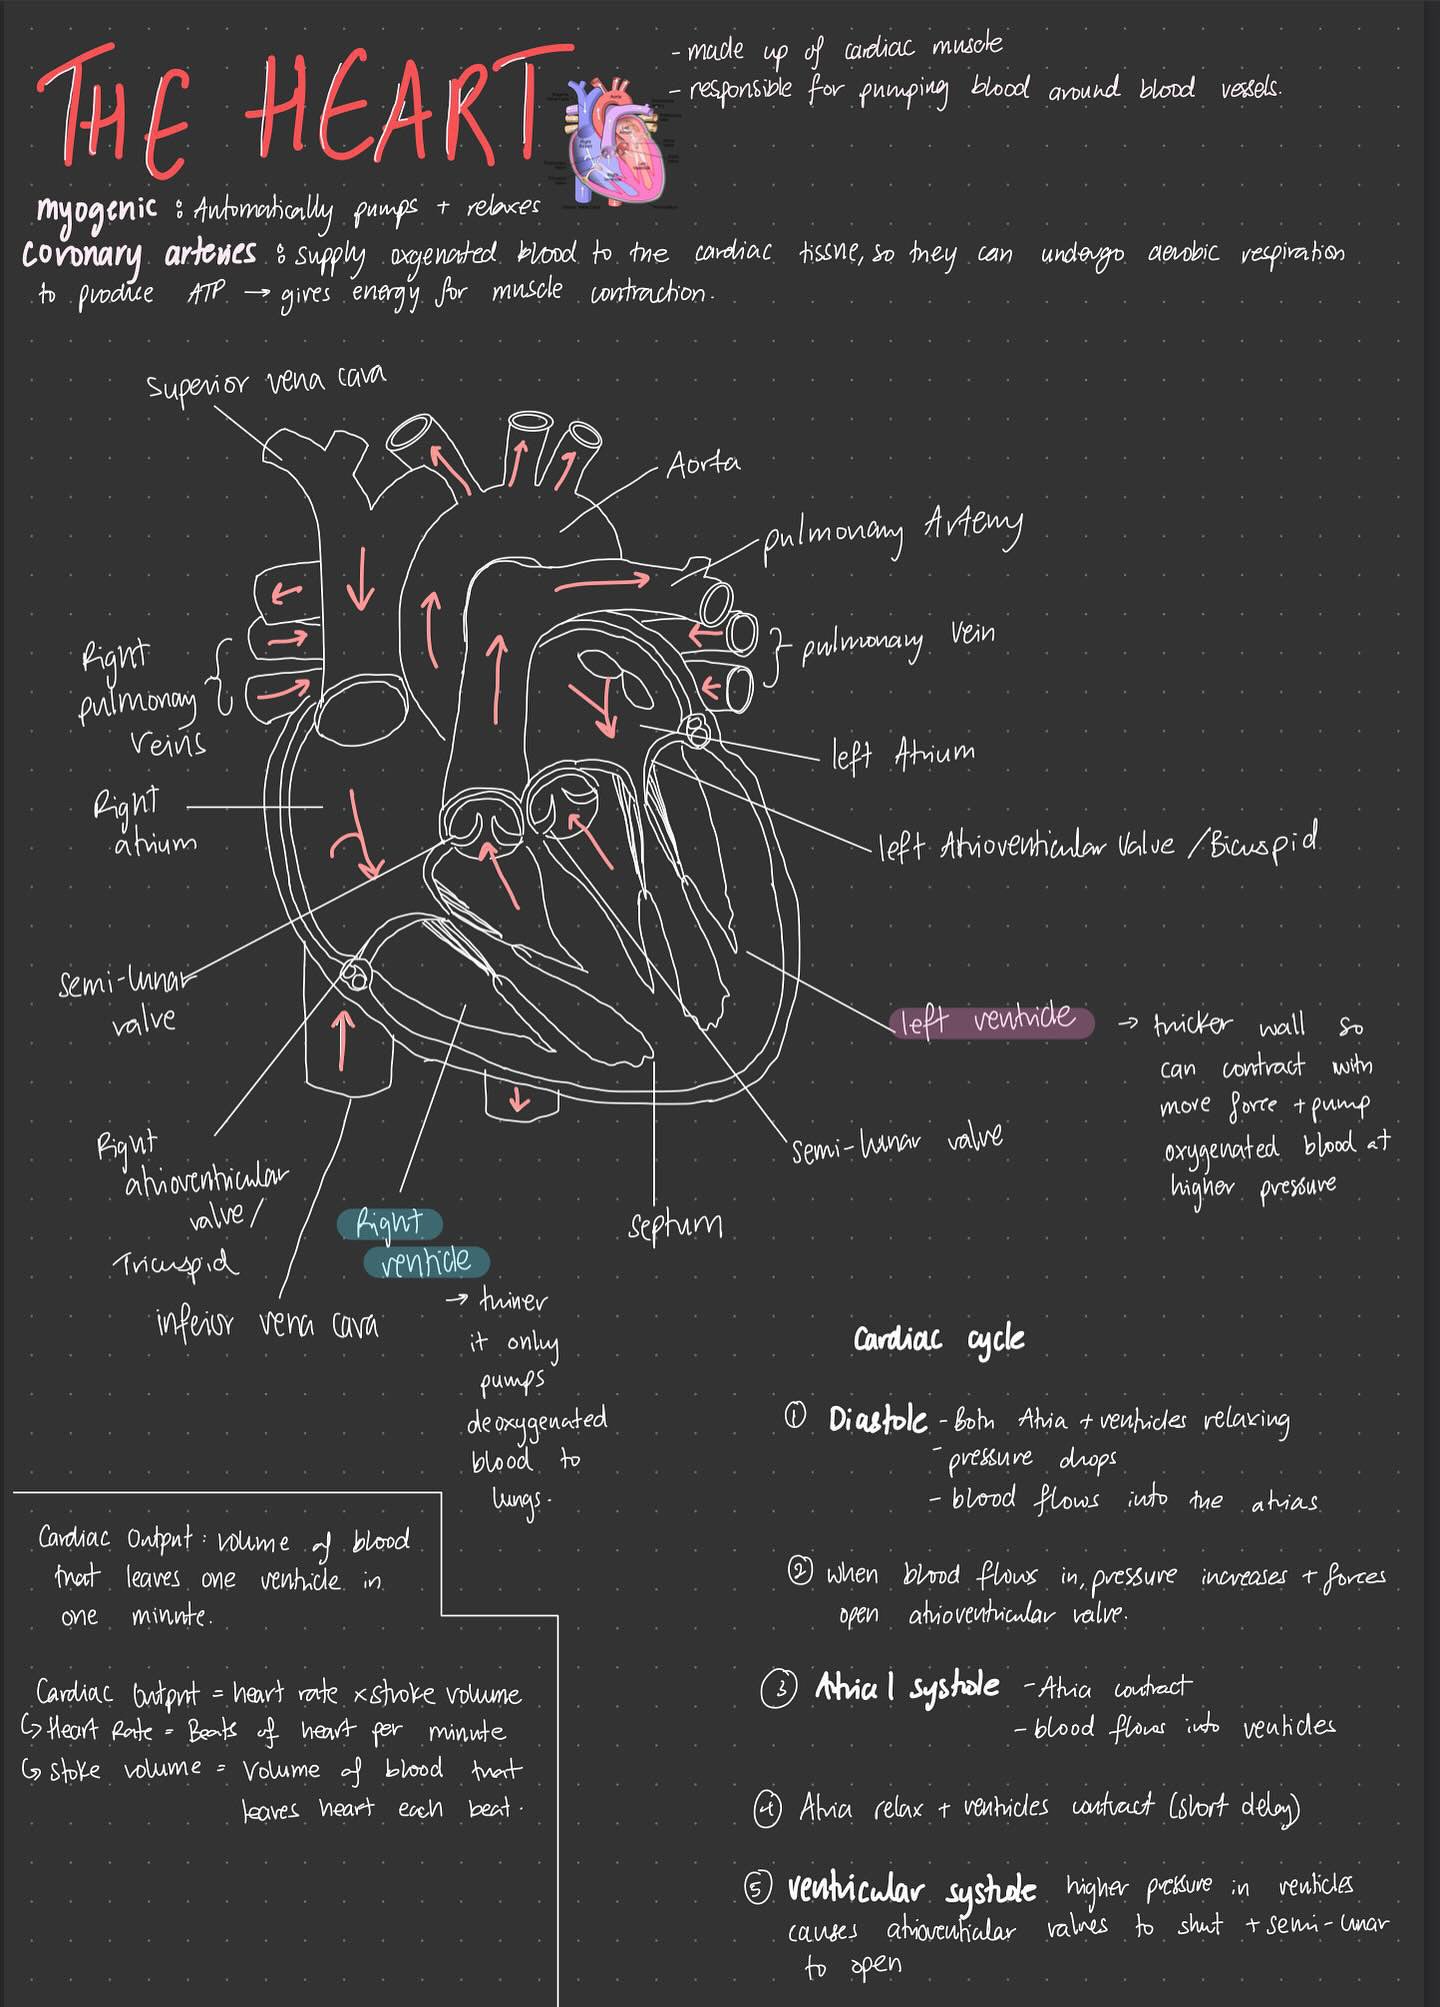 THE HEART
- made up of cardiac muscle
- responsible for pumping blood around blood vessels.
myogenic : Automatically pumps + relaxes
Coronary arteries : supply oxygenated blood to the cardiac tissue, so they can undergo aerobic respiration
to produce ATP → gives energy for muscle contraction.
Superior vena cava
Aorta
pulmonary Artery
pulmonary vein
Right
pulmonary
veins
left Atrium
Right
atrium
left Atrioventricular valve / Bicuspid
semi-lunar
valve
left ventricle → thicker wall so
can contract with
more force + pump
oxygenated blood at
higher pressure
Right
atrioventricular
valve /
Tricuspid
semi-lunar valve
septum
Right
ventricle
→ thiner
it only
pumps
deoxygenated
blood to
lungs.
inferior vena cava
Cardiac cycle
① Diastole - Both Atria + ventricles relaxing
- pressure drops
- blood flows into the atrias
② when blood flows in, pressure increases + forces
open atrioventricular valve.
③ Atrial systole - Atria contract
- blood flows into ventricles
④ Atria relax + ventricles contract (short delay)
⑤ ventricular systole higher pressure in ventricles
causes atrioventricular valves to shut + semi-lunar
to open
Cardiac Output : volume of blood
that leaves one ventricle in
one minute.
Cardiac Output = heart rate x stroke volume
↳ Heart Rate = Beats of heart per minute
↳ stoke volume = volume of blood that
leaves heart each beat.